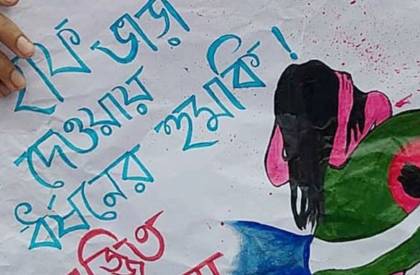 হাফ ভাড়া
দেওয়ায়
ধর্ষনের হুমকি!